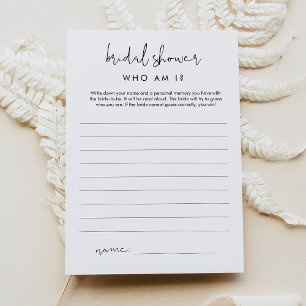 bridal shower
WHO AM I?
Write down your name and a personal memory you have with
the bride-to-be. It will be read aloud. The bride will try to guess
who you are. If the bride cannot guess correctly, you win!
name: